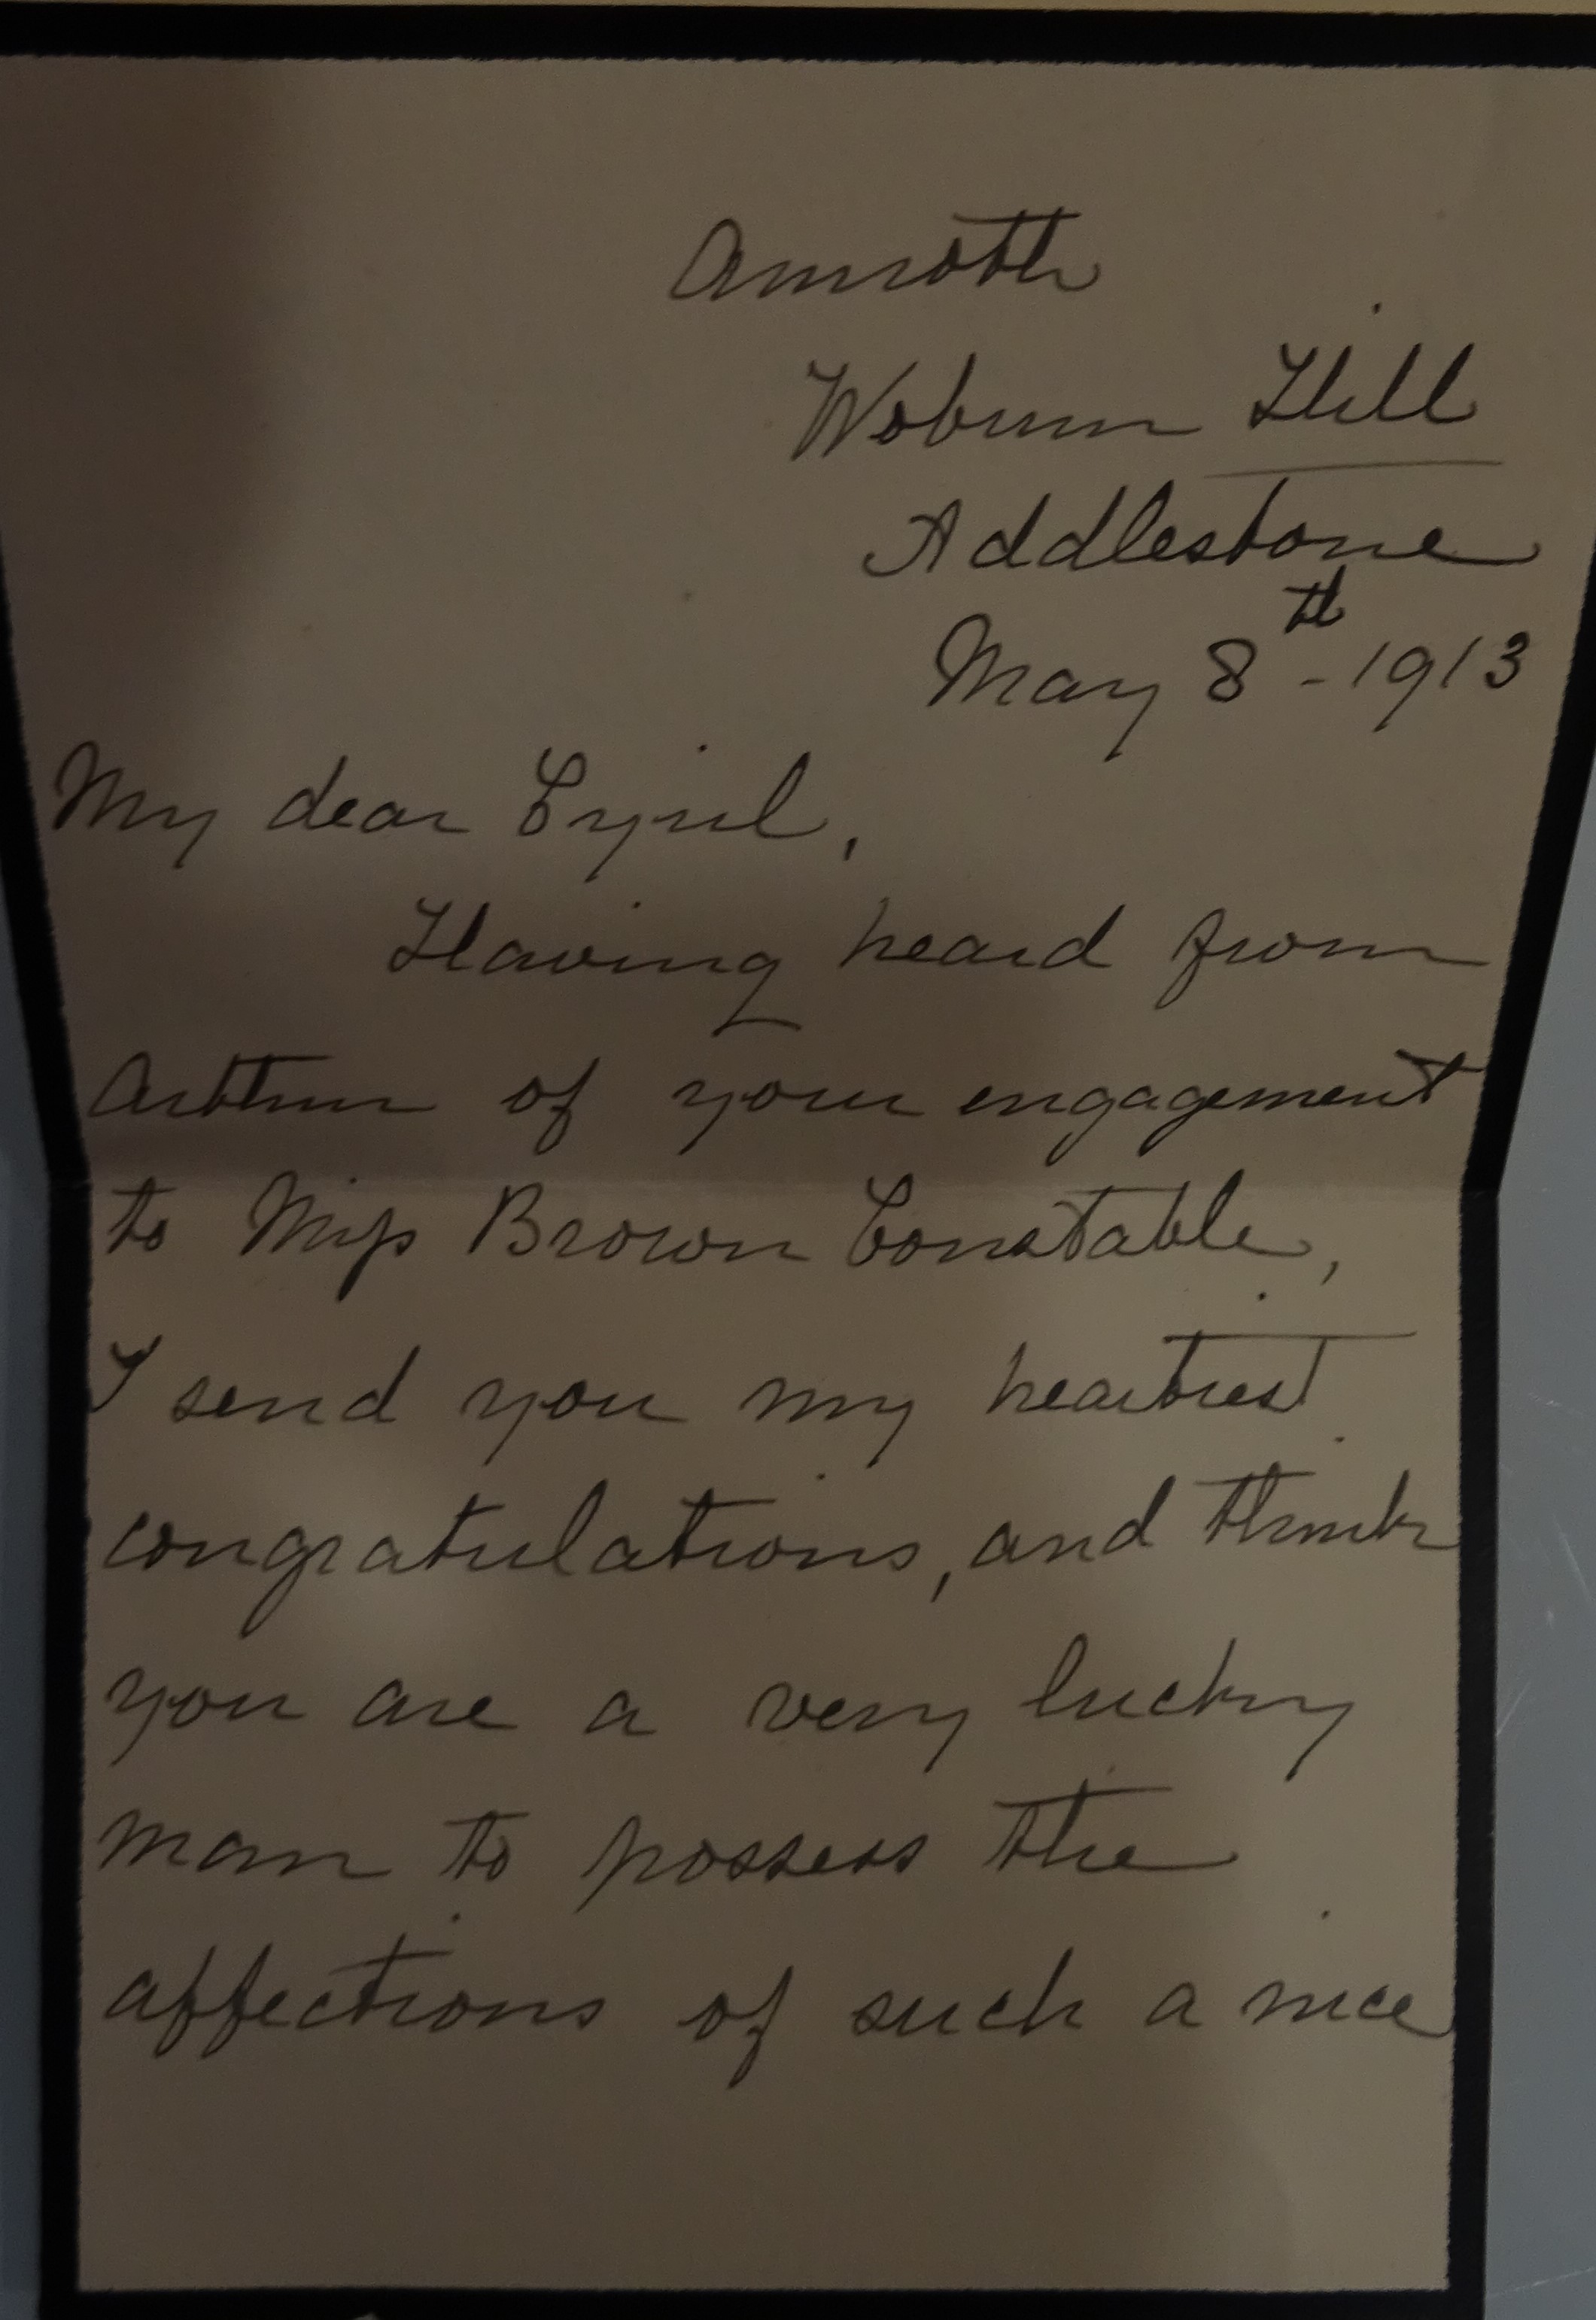 Amroth
Woburn Hill
Addlestone
May 8th - 1913
My dear Cyril,
Having heard from
Arthur of your engagement
to Miss Brown Constable,
I send you my heartiest
congratulations, and think
you are a very lucky
man to possess the
affections of such a nice